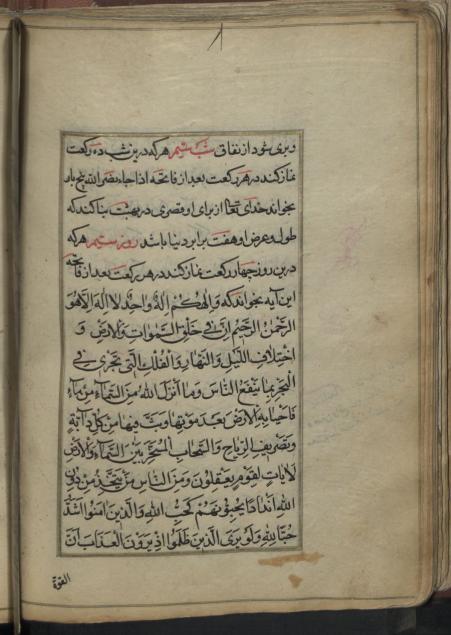 و بری شود از نفاق شب سیم هر که در این شب ده رکعت
نماز کند در هر رکعت بعد از فاتحه اذا جاء نصر الله پنج بار
بخواند خدای تعالی از برای او قصری در بهشت بنا کند که
طول و عرض او هفت برابر دنیا باشد روز سیم هر که
درین روز چهار رکعت نماز کند در هر رکعت بعد از فاتحه
این آیه بخواند که وَاِلهُكُمْ اِلهٌ وَاحِدٌ لا اِلهَ اِلاّ هُوَ
الرَّحْمنُ الرَّحيمُ اِنَّ فِي خَلْقِ السَّمواتِ وَالْاَرْضِ وَ
اخْتِلافِ اللَّيْلِ وَالنَّهارِ وَالْفُلْكِ الَّتي تَجْري فِي
الْبَحْرِ بِما يَنْفَعُ النّاسَ وَما اَنْزَلَ اللهُ مِنَ السَّماءِ مِنْ ماءٍ
فَاَحْيا بِهِ الْاَرْضَ بَعْدَ مَوْتِها وَبَثَّ فيها مِنْ كُلِّ دابَّةٍ
وَتَصْريفِ الرِّياحِ وَالسَّحابِ الْمُسَخَّرِ بَيْنَ السَّماءِ وَالْاَرْضِ
لَاياتٍ لِقَوْمٍ يَعْقِلُونَ وَمِنَ النّاسِ مَنْ يَتَّخِذُ مِنْ دُونِ
اللهِ اَنْدادًا يُحِبُّونَهُمْ كَحُبِّ اللهِ وَالَّذينَ امَنُوا اَشَدُّ
حُبًّا لِلهِ وَلَوْ يَرَى الَّذينَ ظَلَمُوا اِذْ يَرَوْنَ الْعَذابَ اَنَّ
القوة